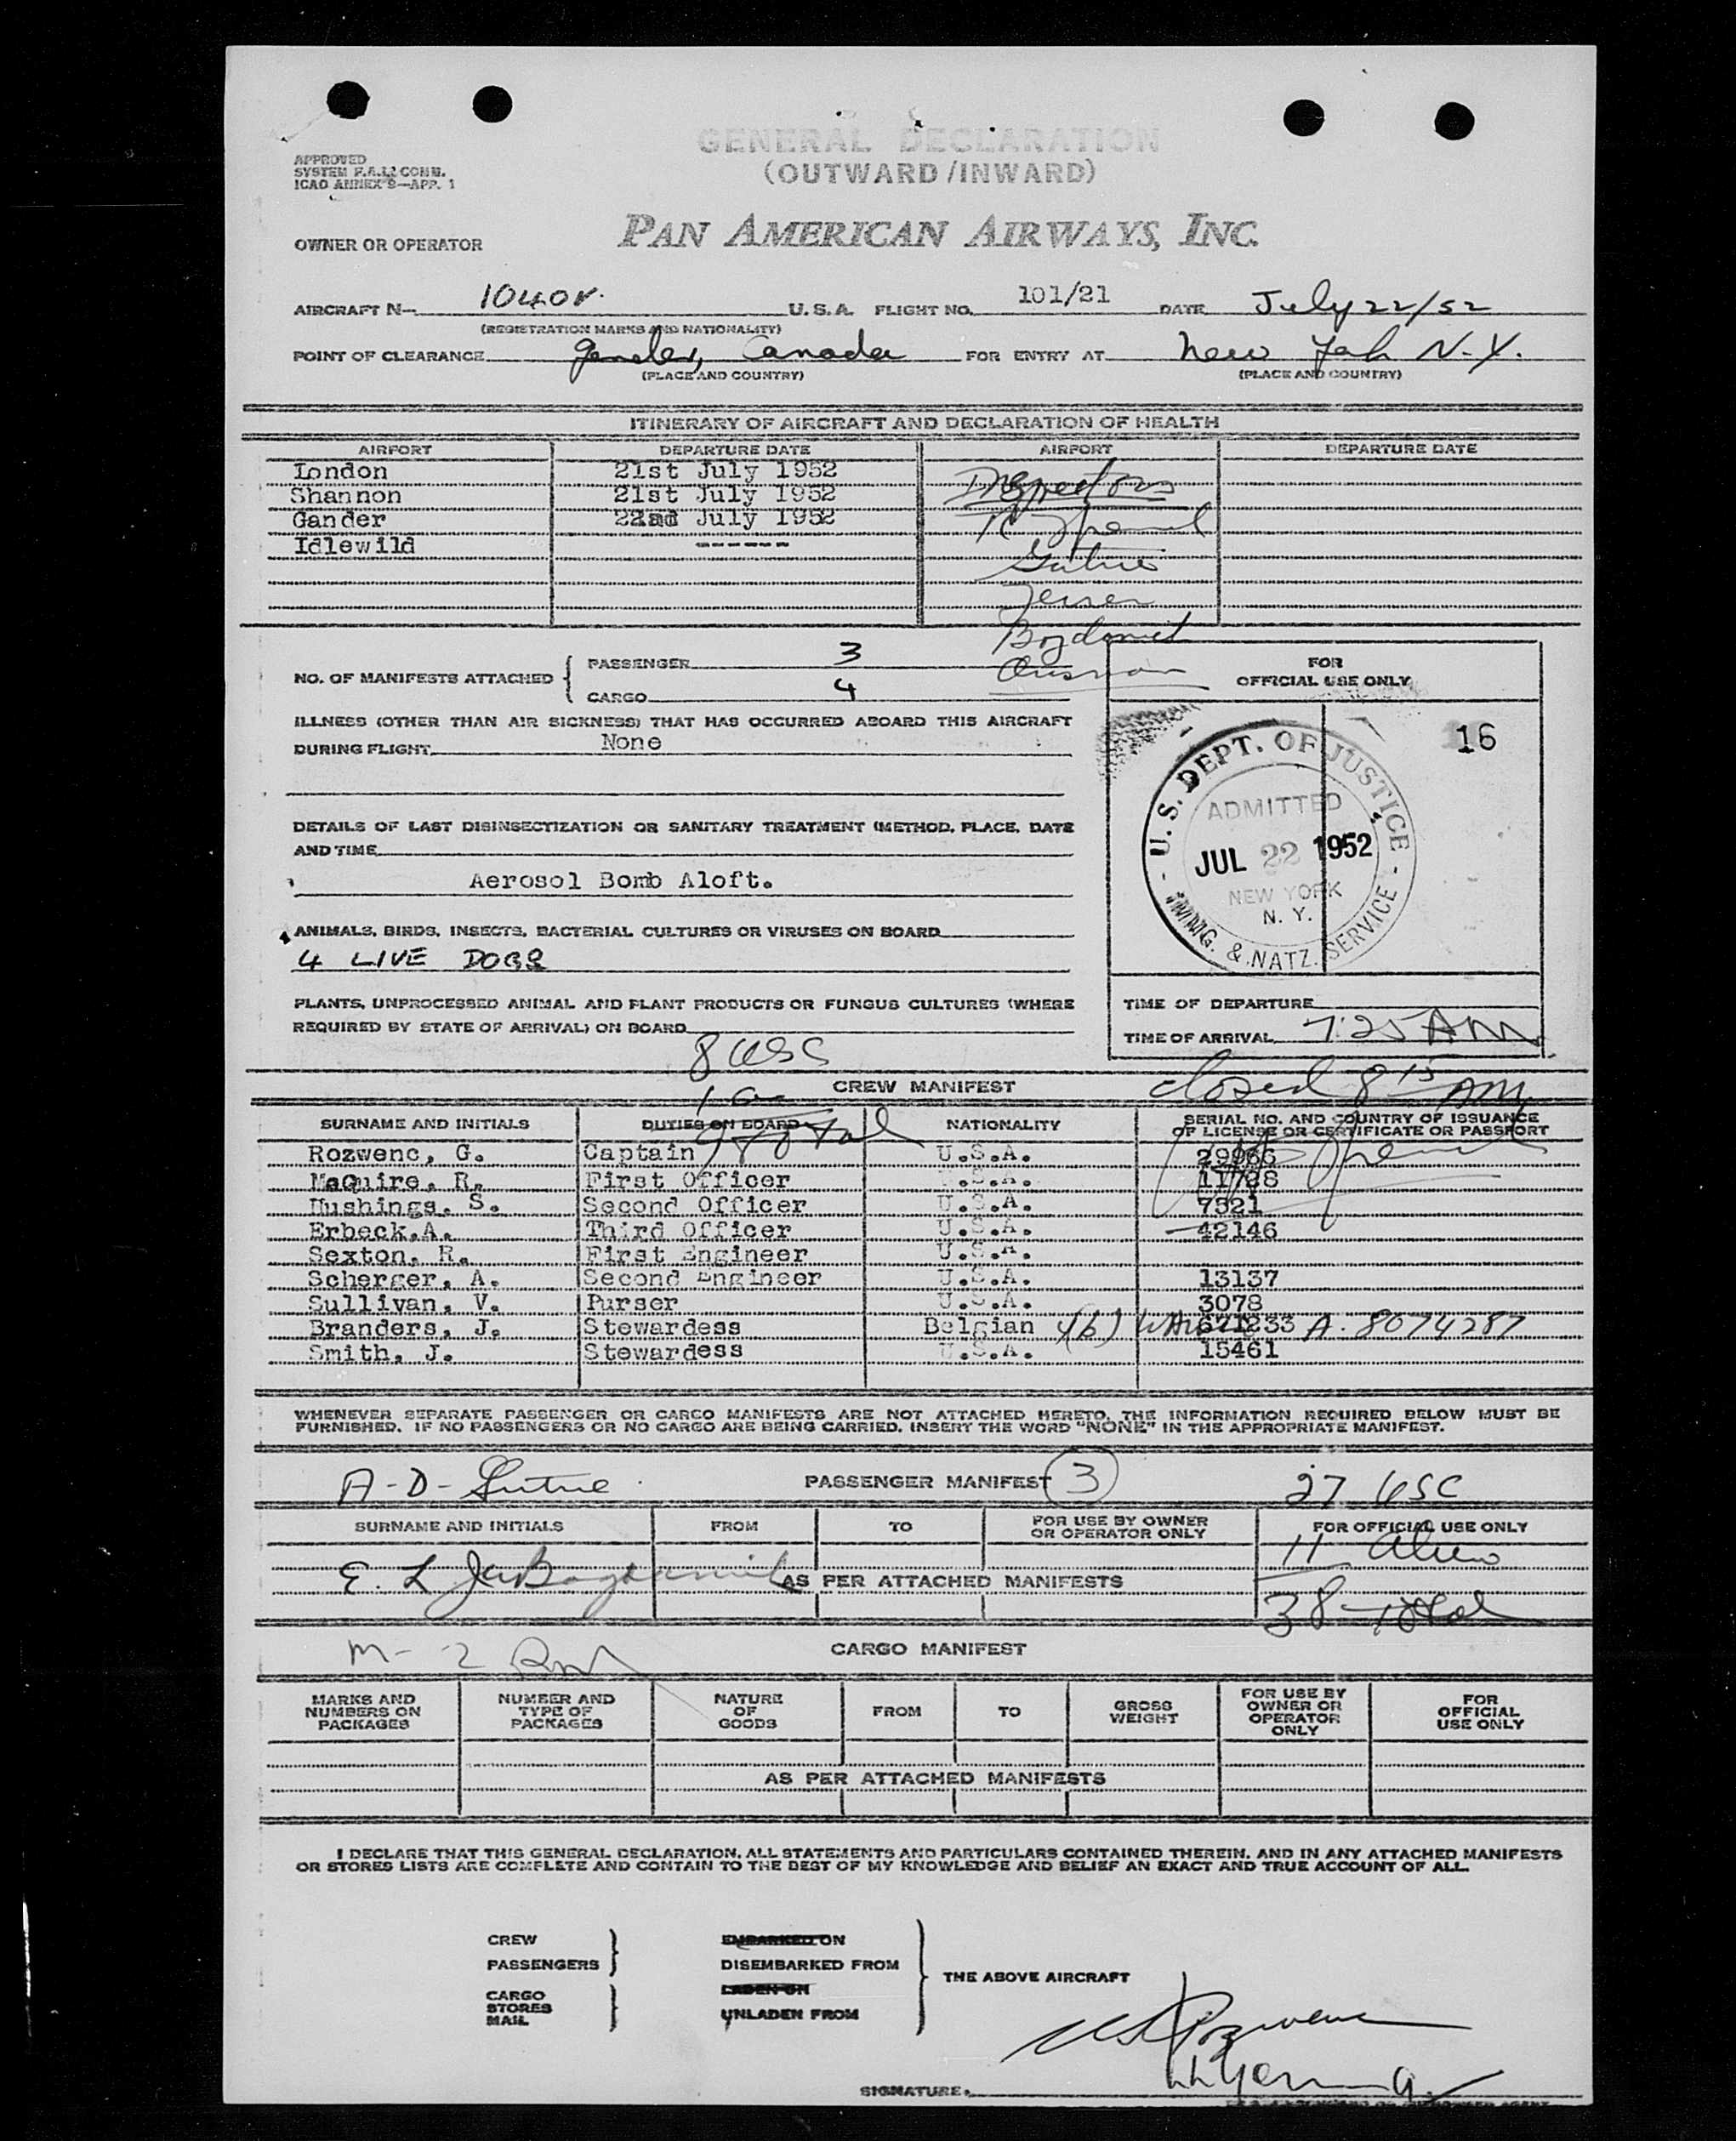 GENERAL DECLARATION
(OUTWARD/INWARD)
APPROVED
SYSTEM F.A.L. COMM.
ICAO ANNEX 9—APP. 1
OWNER OR OPERATOR PAN AMERICAN AIRWAYS, INC.
AIRCRAFT N— 1040V. U.S.A. FLIGHT NO. 101/21 DATE July 22/52
(REGISTRATION MARKS AND NATIONALITY)
POINT OF CLEARANCE Gander, Canada FOR ENTRY AT New York N.Y.
(PLACE AND COUNTRY) (PLACE AND COUNTRY)
ITINERARY OF AIRCRAFT AND DECLARATION OF HEALTH
AIRPORT DEPARTURE DATE AIRPORT DEPARTURE DATE
London 21st July 1952 Inspectors
Shannon 21st July 1952
Gander 22nd July 1952
Idlewild ------
NO. OF MANIFESTS ATTACHED { PASSENGER 3
CARGO 4
FOR
OFFICIAL USE ONLY
ILLNESS (OTHER THAN AIR SICKNESS) THAT HAS OCCURRED ABOARD THIS AIRCRAFT
DURING FLIGHT. None
16
U.S. DEPT. OF JUSTICE
ADMITTED
JUL 22 1952
NEW YORK
N. Y.
IMMIG. & NATZ. SERVICE
DETAILS OF LAST DISINSECTIZATION OR SANITARY TREATMENT (METHOD, PLACE, DATE
AND TIME
Aerosol Bomb Aloft.
ANIMALS, BIRDS, INSECTS, BACTERIAL CULTURES OR VIRUSES ON BOARD
4 LIVE DOGS
PLANTS, UNPROCESSED ANIMAL AND PLANT PRODUCTS OR FUNGUS CULTURES (WHERE
REQUIRED BY STATE OF ARRIVAL) ON BOARD
TIME OF DEPARTURE
TIME OF ARRIVAL 7:25 AM
8 USC
closed 8 15 AM
CREW MANIFEST
9 total
SURNAME AND INITIALS DUTIES ON BOARD NATIONALITY SERIAL NO. AND COUNTRY OF ISSUANCE
OF LICENSE OR CERTIFICATE OR PASSPORT
Rozwenc, G. Captain U.S.A. 29966
MaQuire, R. First Officer U.S.A. 11728
Hushings, S. Second Officer U.S.A. 7521
Erbeck, A. Third Officer U.S.A. 42146
Sexton, R. First Engineer U.S.A.
Scherger, A. Second Engineer U.S.A. 13137
Sullivan, V. Purser U.S.A. 3078
Branders, J. Stewardess Belgian 671233 A-8074287
Smith, J. Stewardess U.S.A. 15461
WHENEVER SEPARATE PASSENGER OR CARGO MANIFESTS ARE NOT ATTACHED HERETO, THE INFORMATION REQUIRED BELOW MUST BE
FURNISHED. IF NO PASSENGERS OR NO CARGO ARE BEING CARRIED, INSERT THE WORD "NONE" IN THE APPROPRIATE MANIFEST.
PASSENGER MANIFEST 3 27 USC
SURNAME AND INITIALS FROM TO FOR USE BY OWNER
OR OPERATOR ONLY FOR OFFICIAL USE ONLY
11 Alien
AS PER ATTACHED MANIFESTS
38 total
CARGO MANIFEST
MARKS AND
NUMBERS ON
PACKAGES NUMBER AND
TYPE OF
PACKAGES NATURE
OF
GOODS FROM TO GROSS
WEIGHT FOR USE BY
OWNER OR
OPERATOR
ONLY FOR
OFFICIAL
USE ONLY
AS PER ATTACHED MANIFESTS
I DECLARE THAT THIS GENERAL DECLARATION, ALL STATEMENTS AND PARTICULARS CONTAINED THEREIN, AND IN ANY ATTACHED MANIFESTS
OR STORES LISTS ARE COMPLETE AND CONTAIN TO THE BEST OF MY KNOWLEDGE AND BELIEF AN EXACT AND TRUE ACCOUNT OF ALL.
CREW
PASSENGERS
CARGO
STORES
MAIL
EMBARKED ON
DISEMBARKED FROM
LADEN ON
UNLADEN FROM
THE ABOVE AIRCRAFT
SIGNATURE.